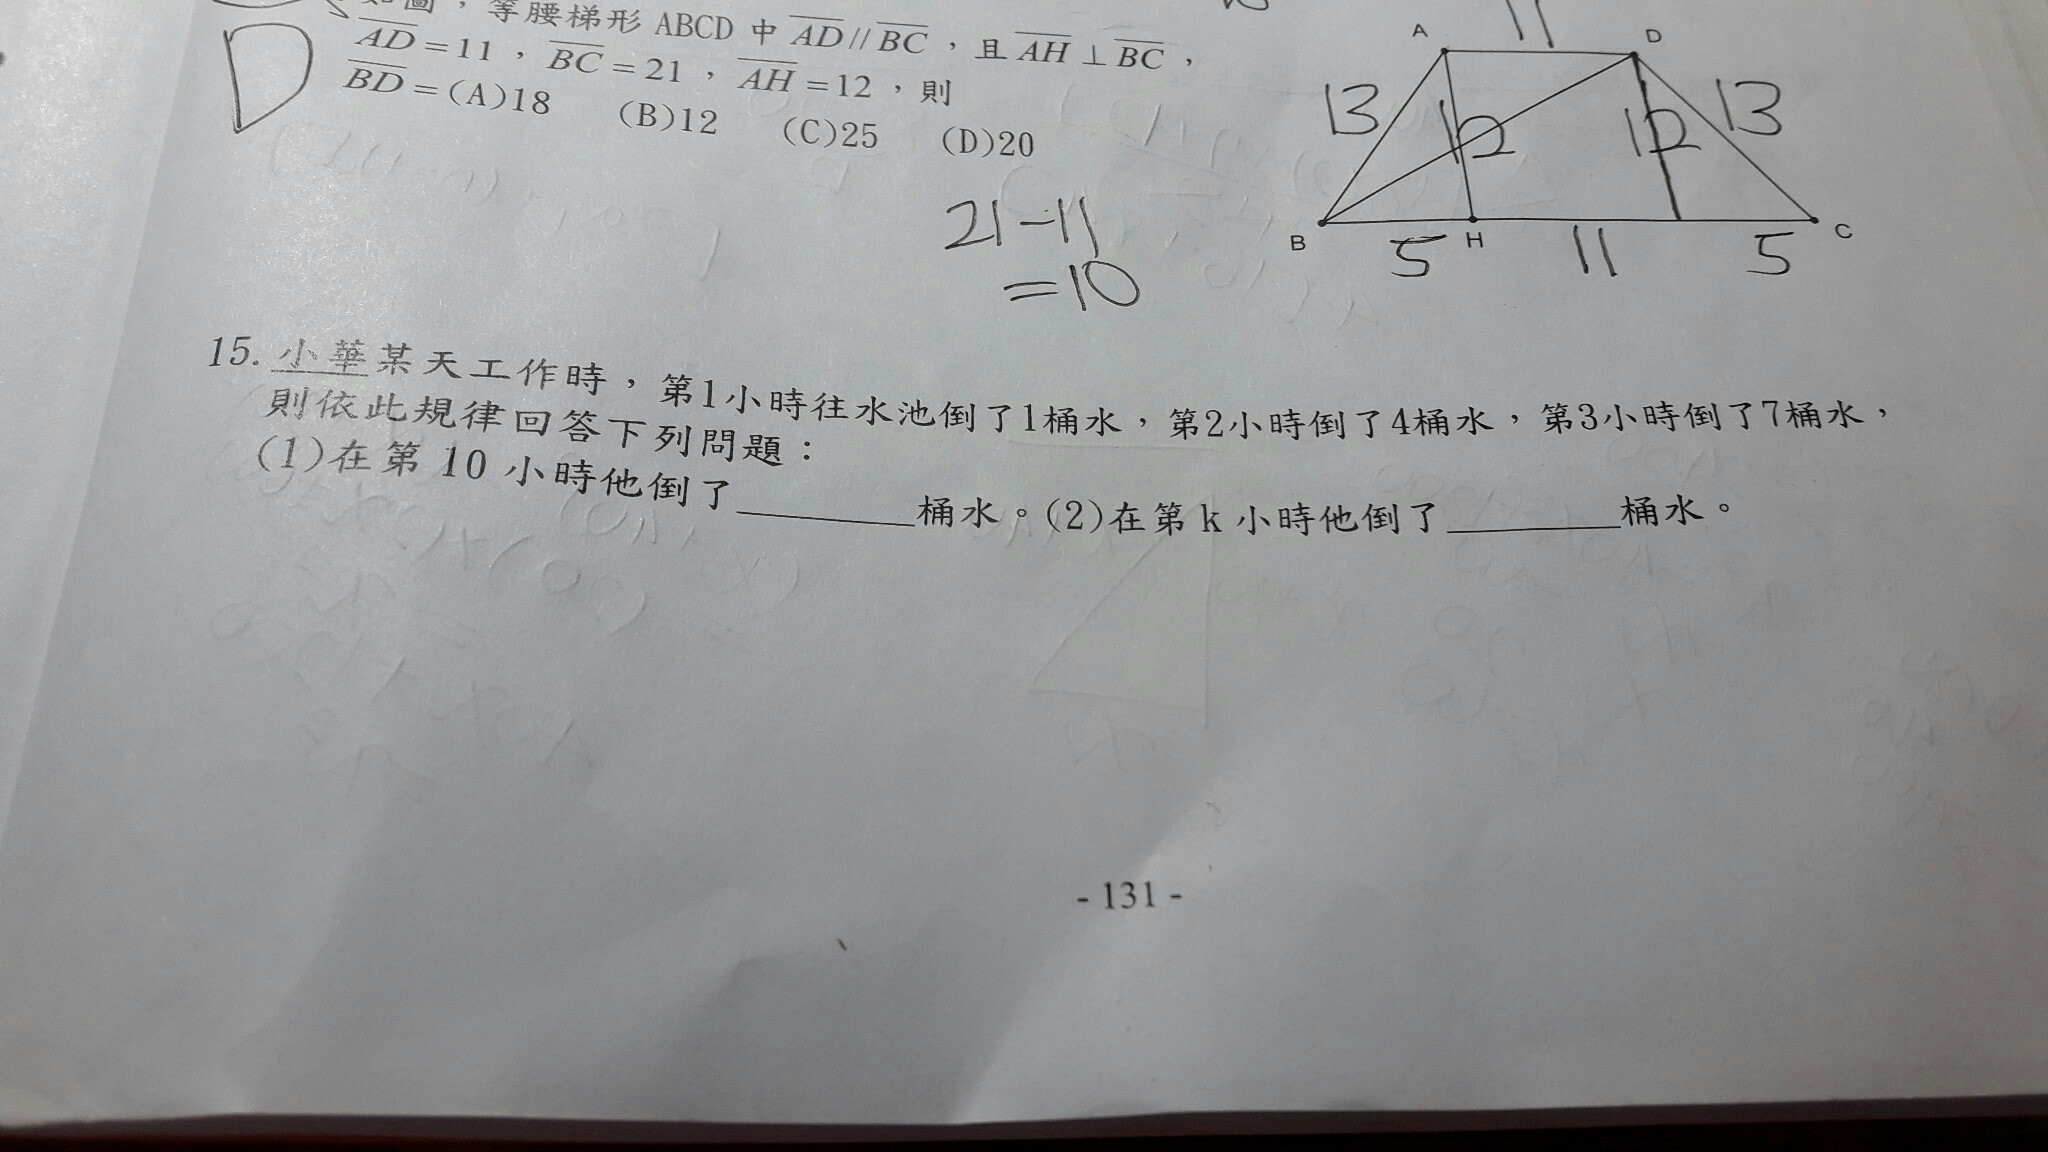 如圖，等腰梯形ABCD中AD//BC，且AH⊥BC，
AD=11，BC=21，AH=12，則
BD=(A)18 (B)12 (C)25 (D)20
D
21-11
=10
11
A D
13 12 12 13
B H C
5 11 5
15. 小華某天工作時，第1小時往水池倒了1桶水，第2小時倒了4桶水，第3小時倒了7桶水，
則依此規律回答下列問題：
(1)在第10小時他倒了______桶水。(2)在第k小時他倒了______桶水。
- 131 -